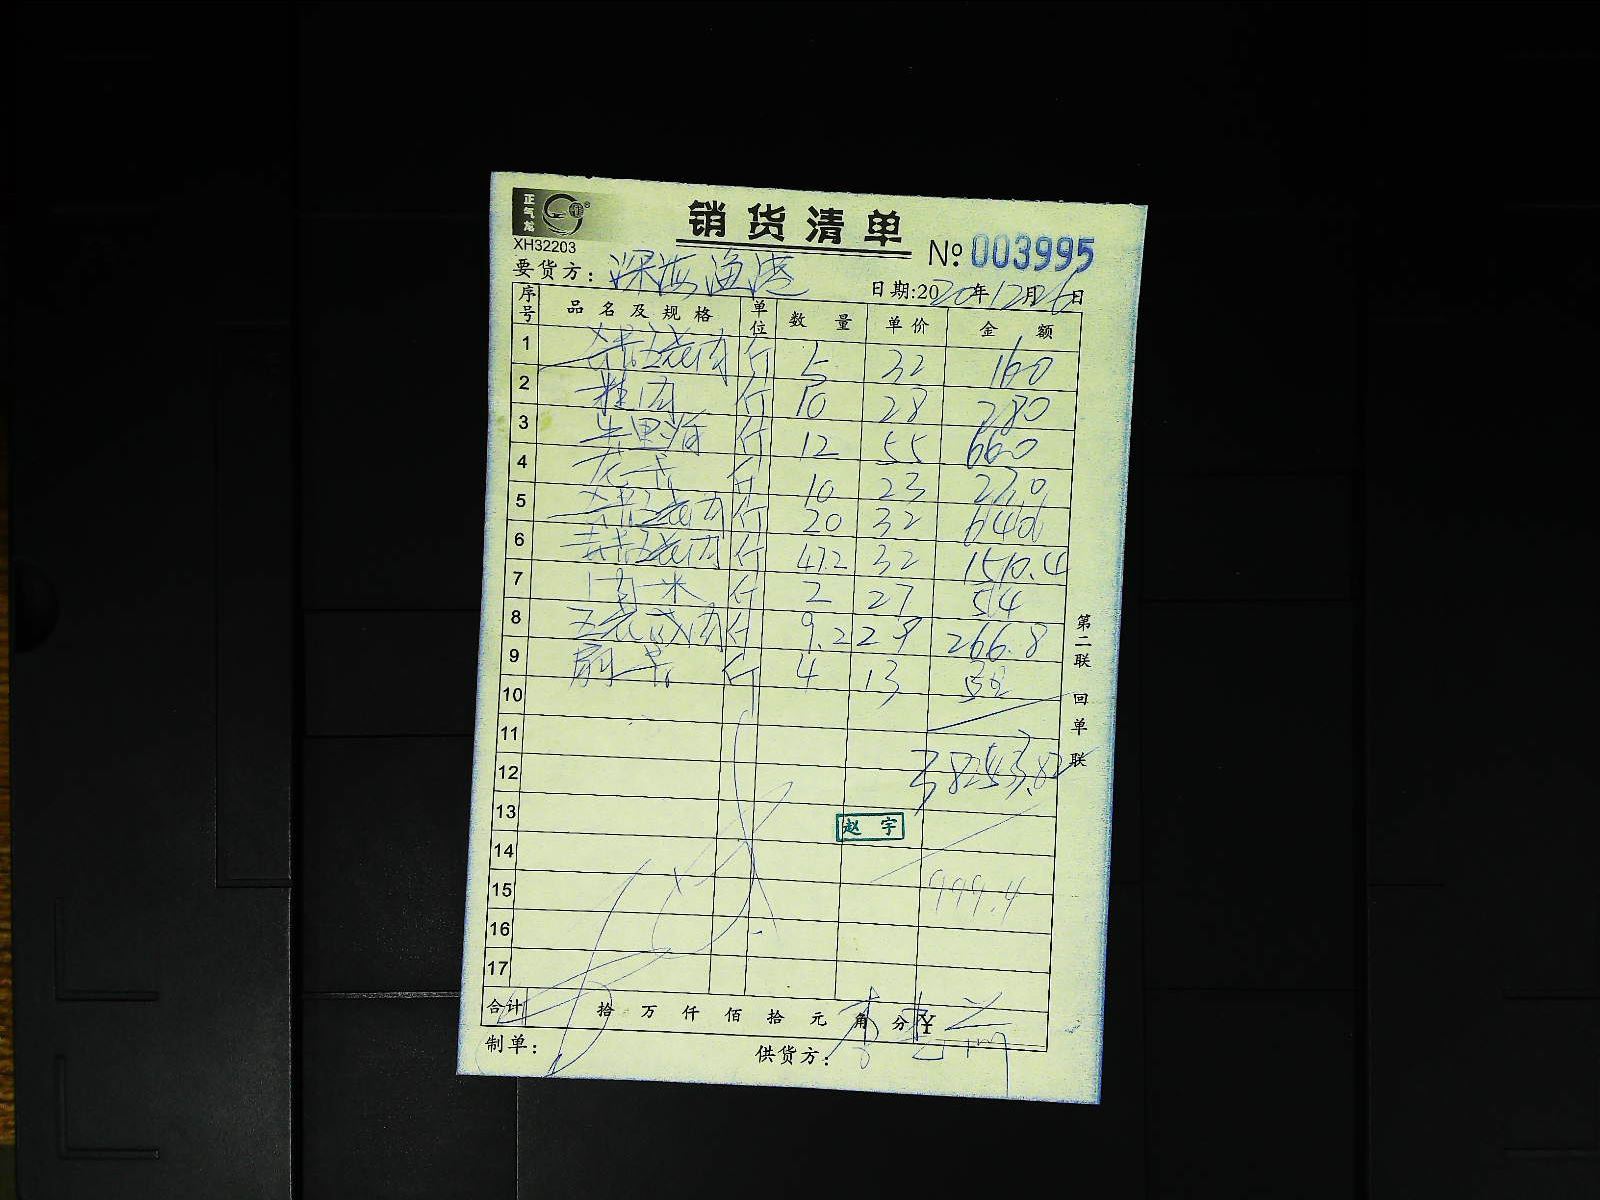 正气龙
销货清单
XH32203
№ 003995
要货方: 深海渔港
日期:2020年12月26日
序号 品名及规格 单位 数量 单价 金额
1 斤 5 32 160
2 精肉 斤 10 28 280
3 牛里脊 斤 12 55 660
4 斤 10 23 230
5 斤 20 32 640
6 斤 47.2 32 1510.4
7 肉米 斤 2 27 54
8 五花肉 斤 9.2 29 266.8
9 扇骨 斤 4 13 52
10
11
12
13 赵宇
14
15 999.4
16
17
合计 拾 万 仟 佰 拾 元 角 分 ¥
制单: 供货方:
第二联 回单联